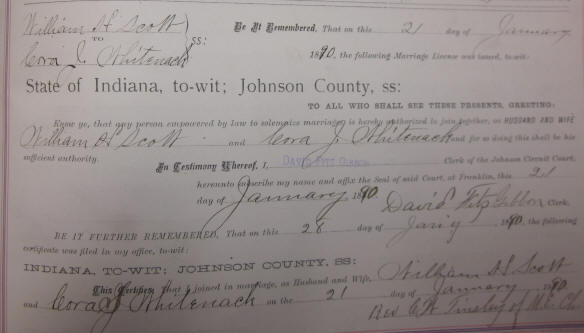 William H. Scott
TO
Cora J. Whitenack
ss:
Be It Remembered, That on this 21 day of January
1890, the following Marriage License was issued, to-wit:
State of Indiana, to-wit; Johnson County, ss:
TO ALL WHO SHALL SEE THESE PRESENTS, GREETING:
Know ye, that any person empowered by law to solemnize marriages is hereby authorized to join together, as HUSBAND AND WIFE
William H. Scott and Cora J. Whitenack and for so doing this shall be his
sufficient authority.
In Testimony Whereof, I, DAVID FITZ GIBBON Clerk of the Johnson Circuit Court,
hereunto subscribe my name and affix the Seal of said Court, at Franklin, this 21
day of January 1890. David Fitz Gibbon Clerk.
BE IT FURTHER REMEMBERED, That on this 28 day of Jan'y 1890, the following
certificate was filed in my office, to-wit:
INDIANA, TO-WIT; JOHNSON COUNTY, SS:
This Certifies, That I joined in marriage, as Husband and Wife, William H. Scott
and Cora J. Whitenack on the 21 day of January 1890
Rev. C. W. Tinsley of M. E. Ch.